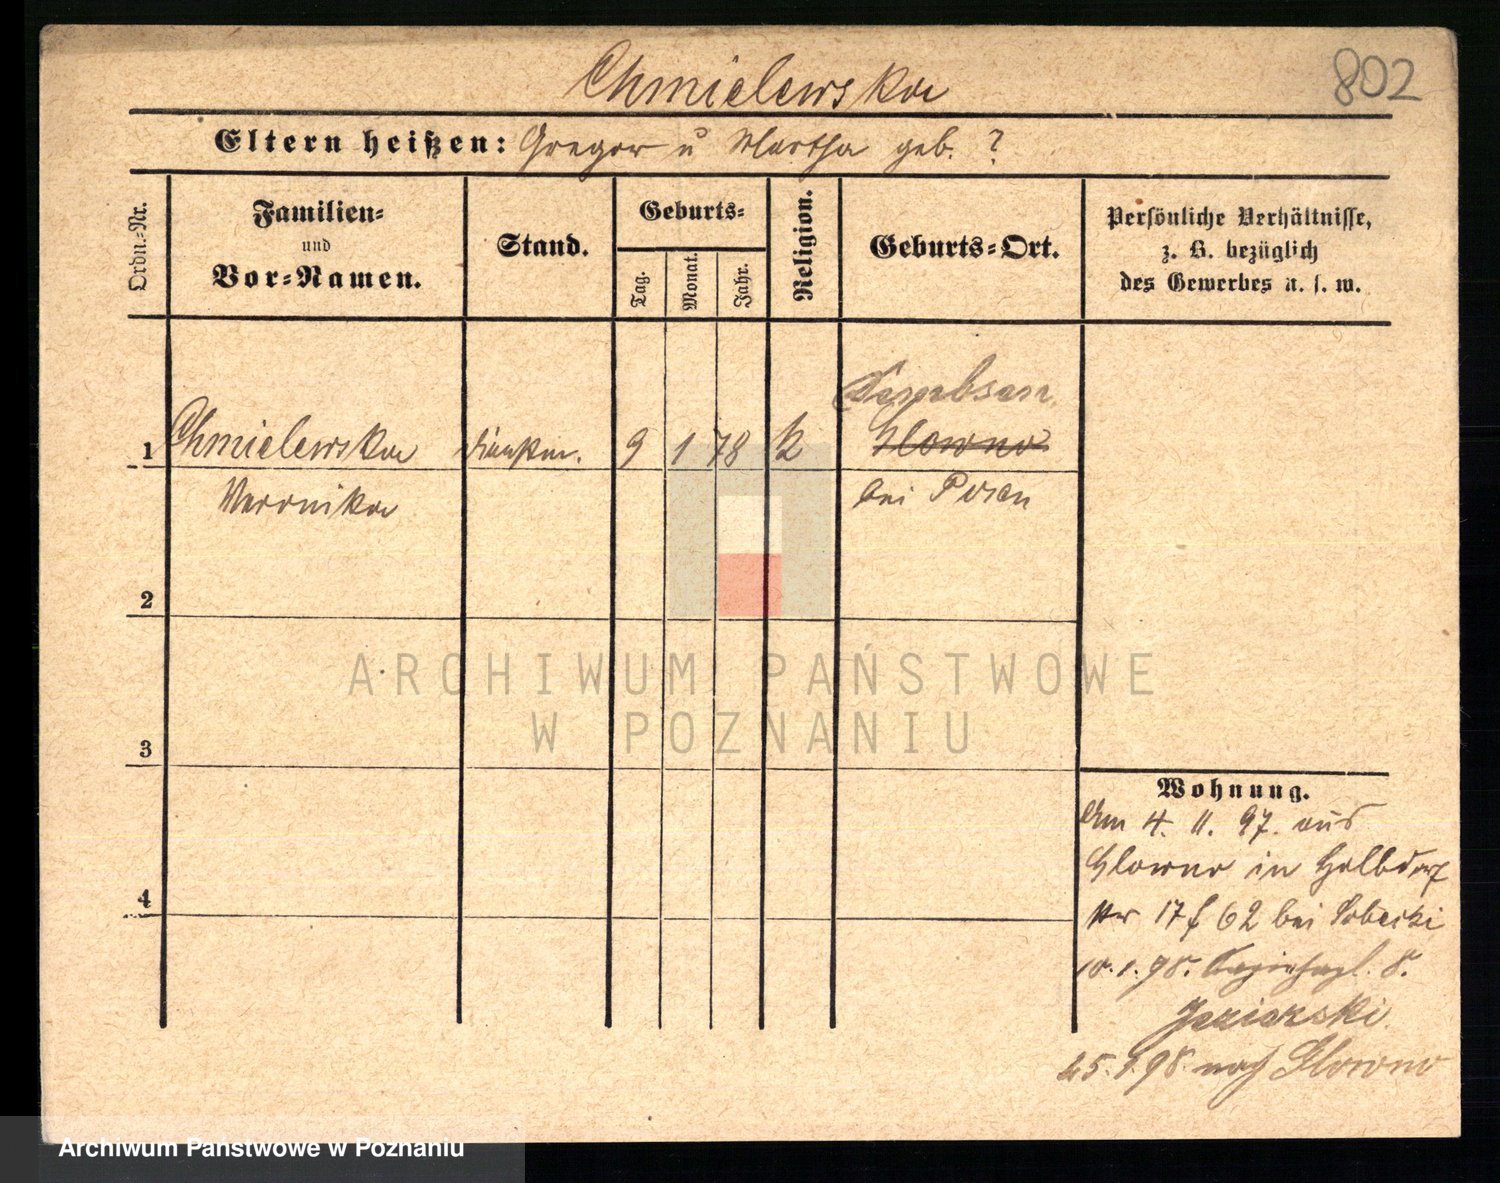 802
Chmielewska
Eltern heißen: Gregor u Martha geb. ?
Ordn.-Nr.
Familien- und Vor-Namen.
Stand.
Geburts-
Tag.
Monat.
Jahr.
Religion.
Geburts-Ort.
Persönliche Verhältnisse,
z. B. bezüglich
des Gewerbes u. s. w.
1 Chmielewska 9 1 78 k Glowno
Veronika bei Posen
2
3
4
Wohnung.
Am 4. 11. 97. aus
Glowno in Halbdorf
17 62 bei Sobecki
10. 1. 98. 8.
Jezierski
25. 98. nach Glowno
ARCHIWUM PAŃSTWOWE
W POZNANIU
Archiwum Państwowe w Poznaniu